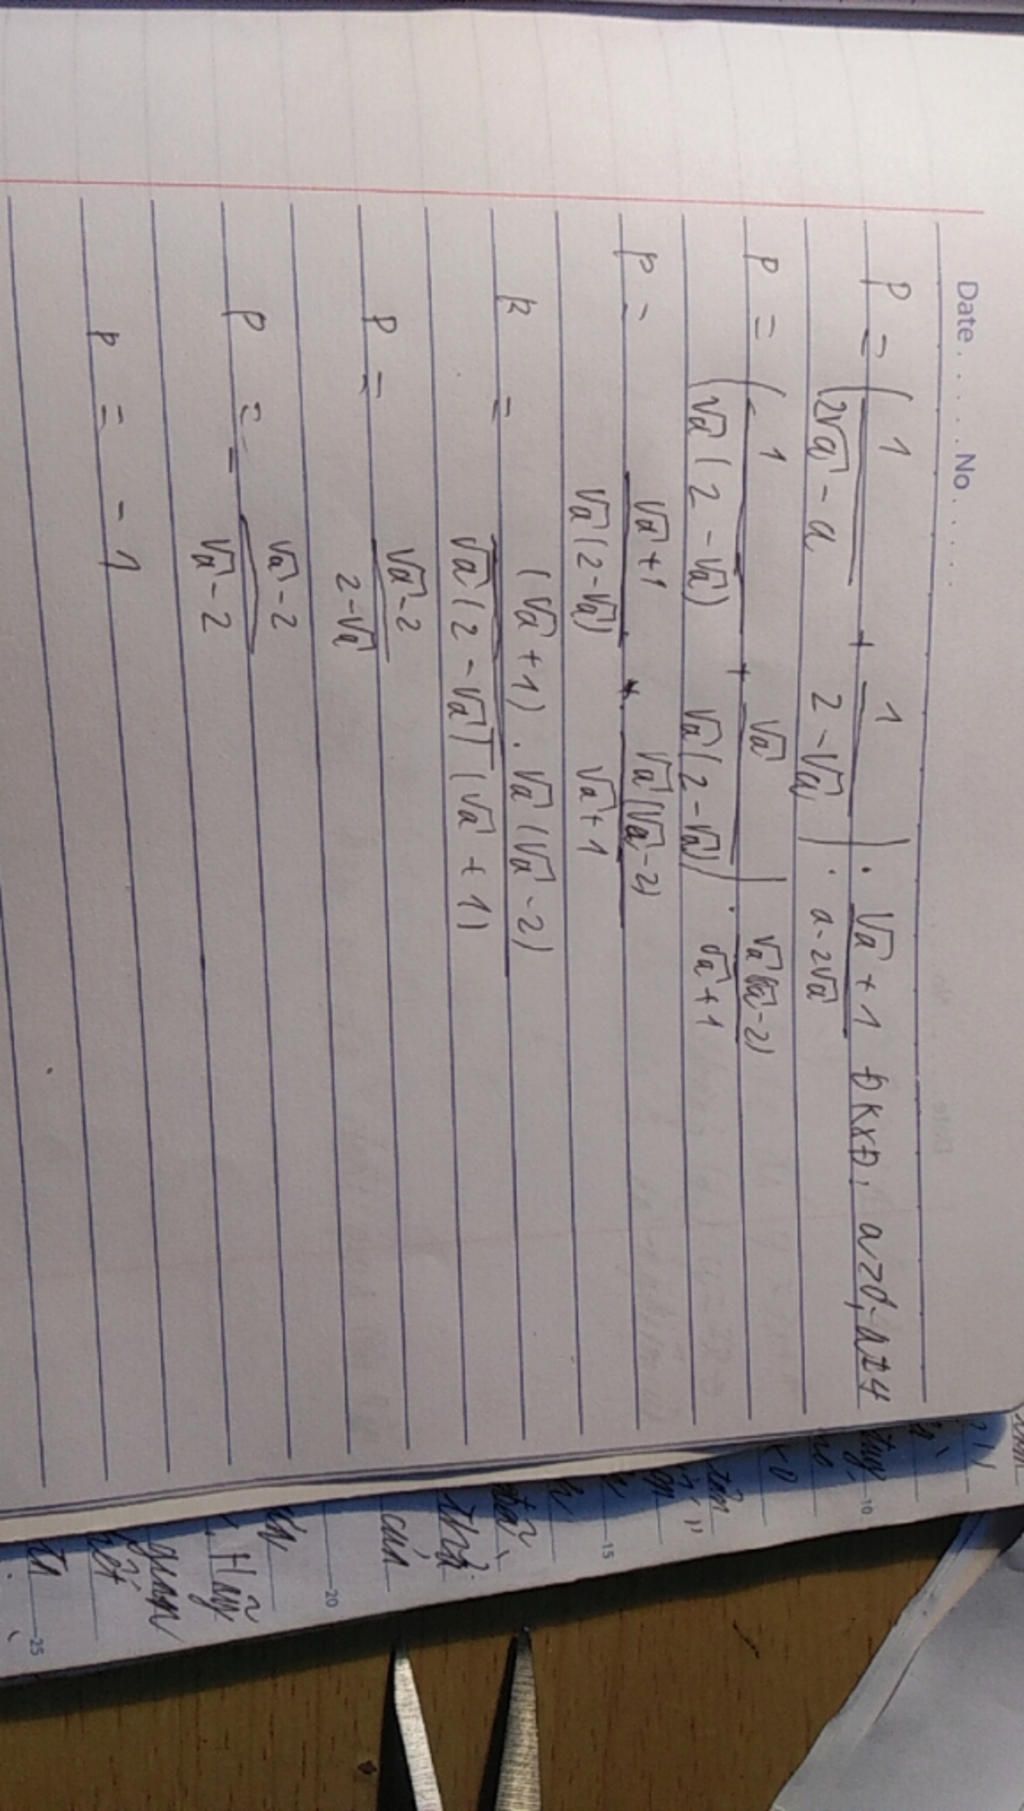 Date . . . . . No . . . . . .
P = (1/(2√a - a) + 1/(2 - √a)) . (√a + 1)/(a - 2√a) ĐKXĐ: a>0; a≠4
P = (1/(√a (2 - √a)) + √a/(√a (2 - √a))) . √a(√a - 2)/(√a + 1)
P = (√a + 1)/(√a (2 - √a)) . √a(√a - 2)/(√a + 1)
P = ((√a + 1) . √a (√a - 2))/(√a (2 - √a) (√a + 1))
P = (√a - 2)/(2 - √a)
P = - (√a - 2)/(√a - 2)
P = - 1
10
15
20
25
cần
Hãy